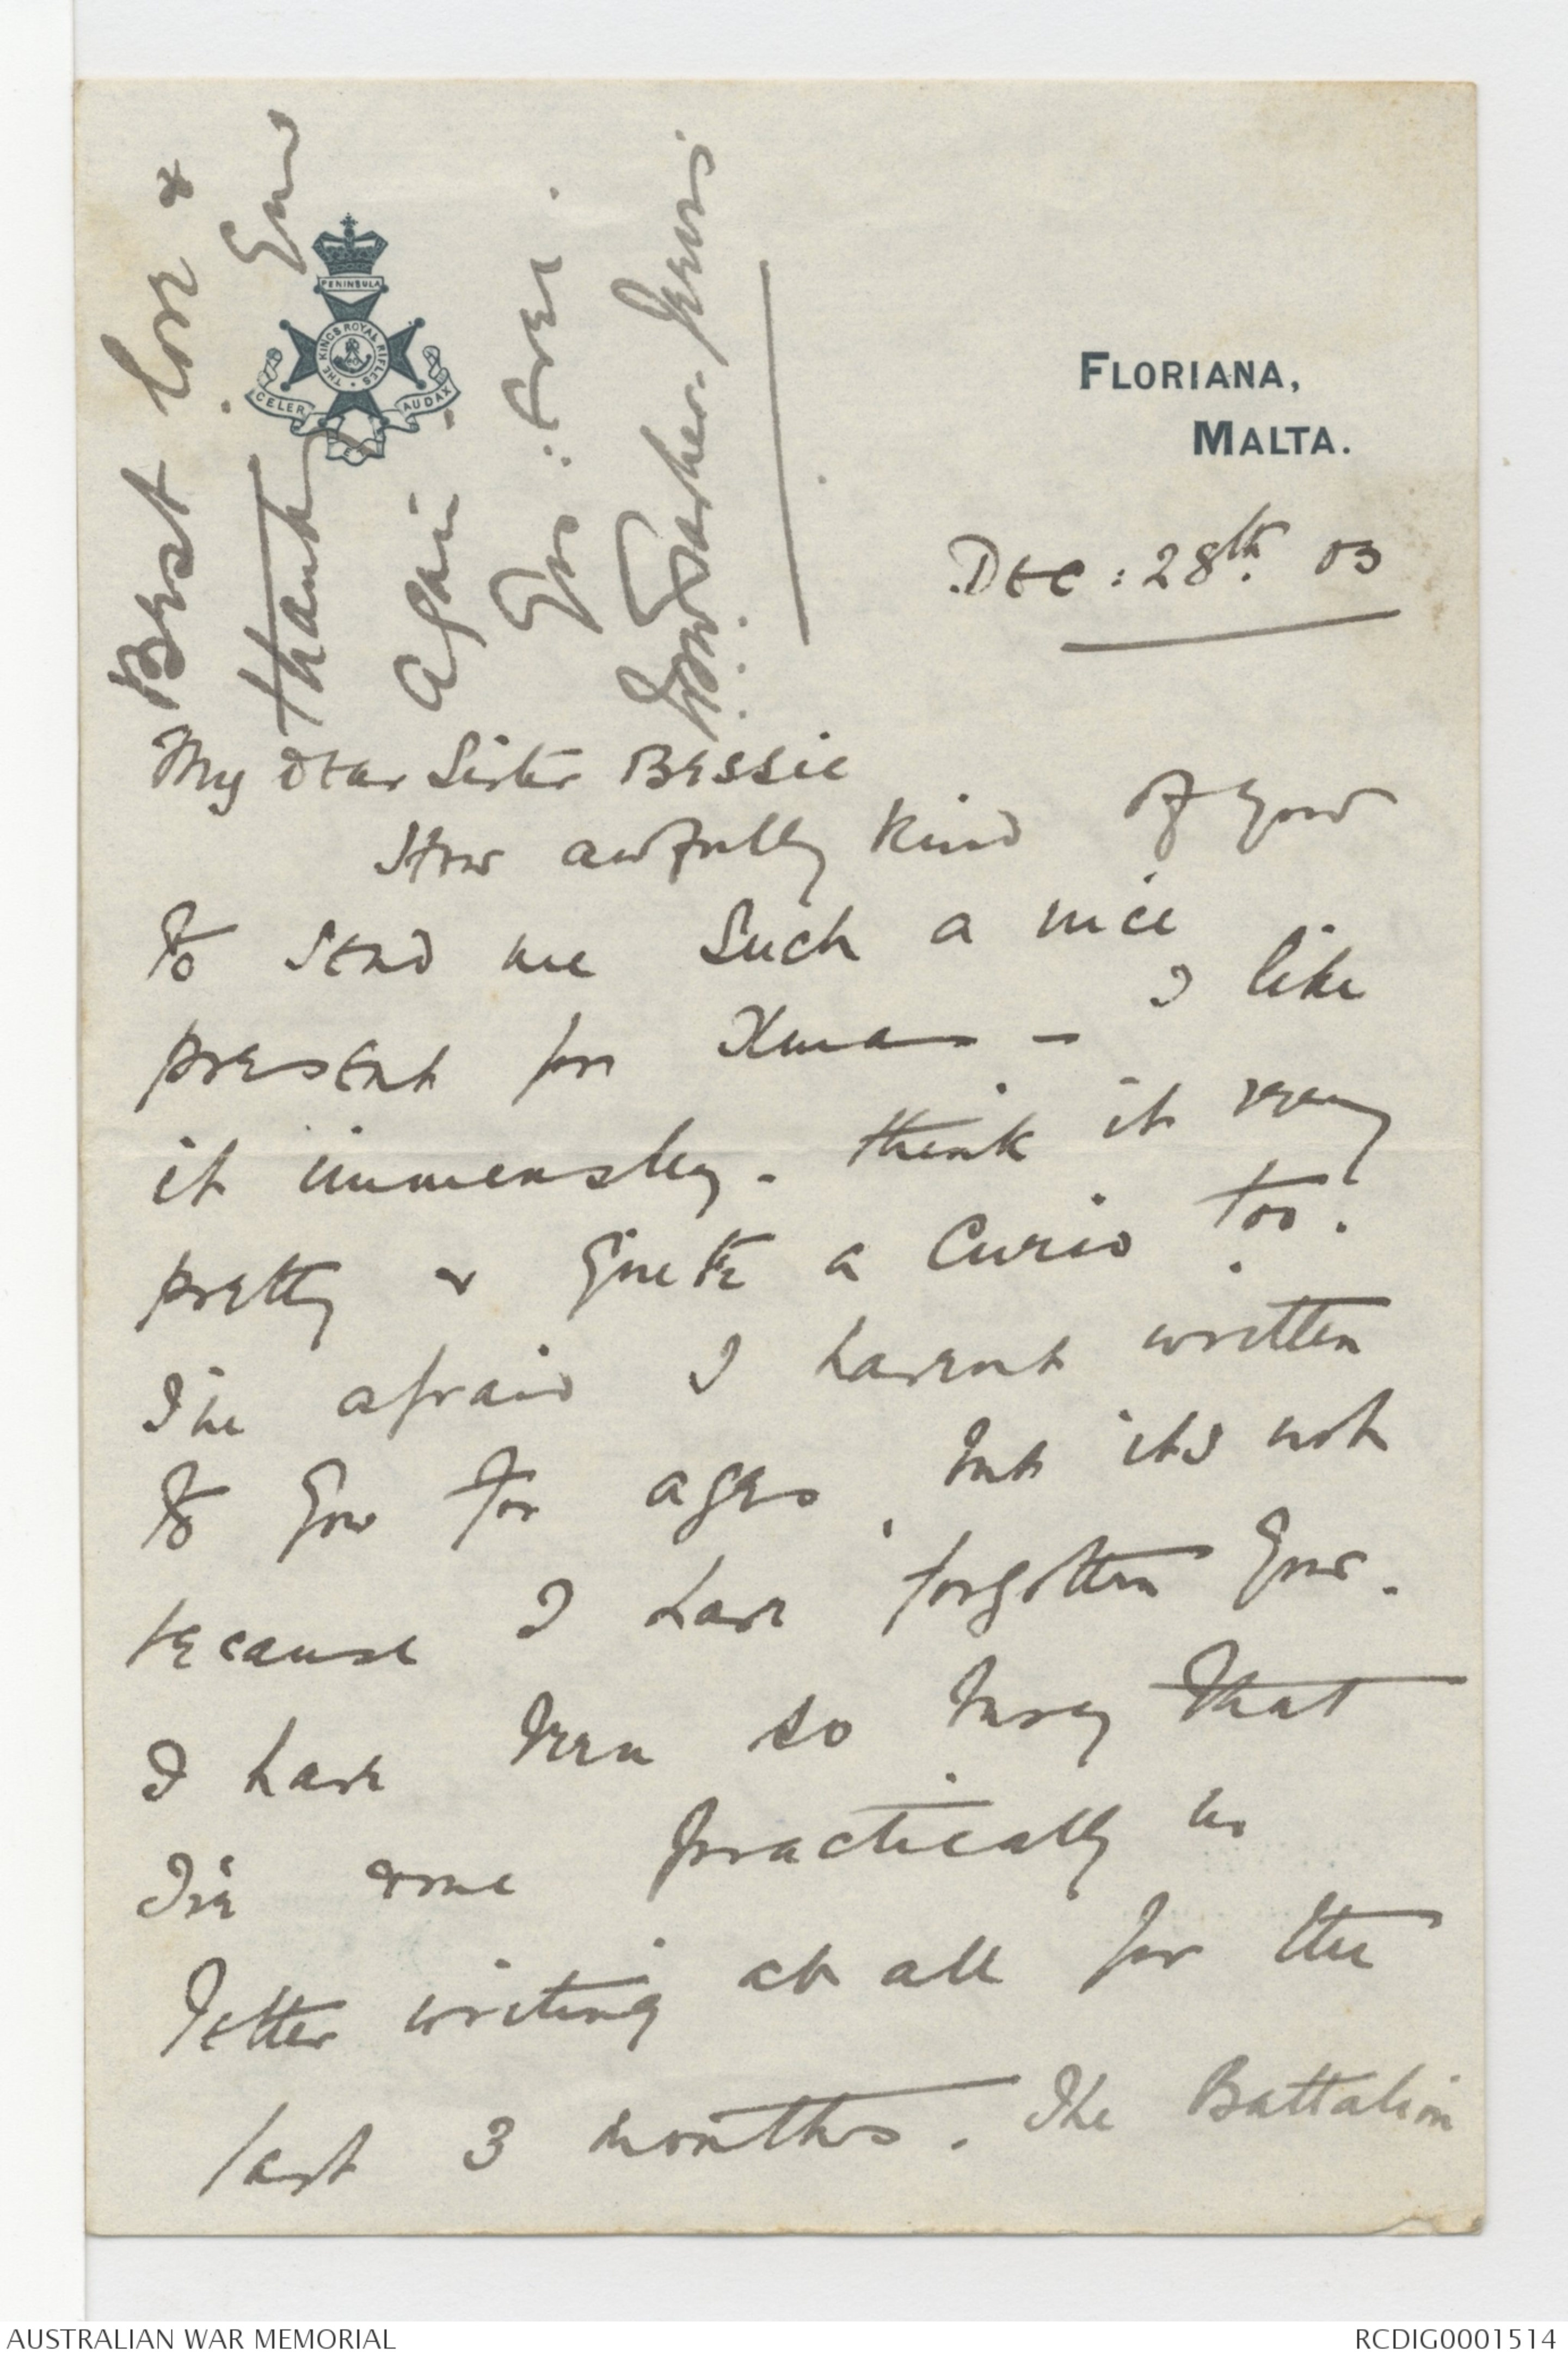 PENINSULA
THE KINGS ROYAL RIFLES
CELER AUDAX
FLORIANA,
MALTA.
Dec: 28th. 03
My dear Sister Bessie
How awfully kind of you
to send me such a nice
present for Xmas - I like
it immensely. think it very
pretty & quite a curio too.
I'm afraid I havent written
to you for ages, but its not
because I have forgotten you.
I have been so busy that
I've done practically no
letter writing at all for the
last 3 months. The Battalion
Best love &
thank you
again.
Yrs: ever
Parker-Jervis
AUSTRALIAN WAR MEMORIAL
RCDIG0001514